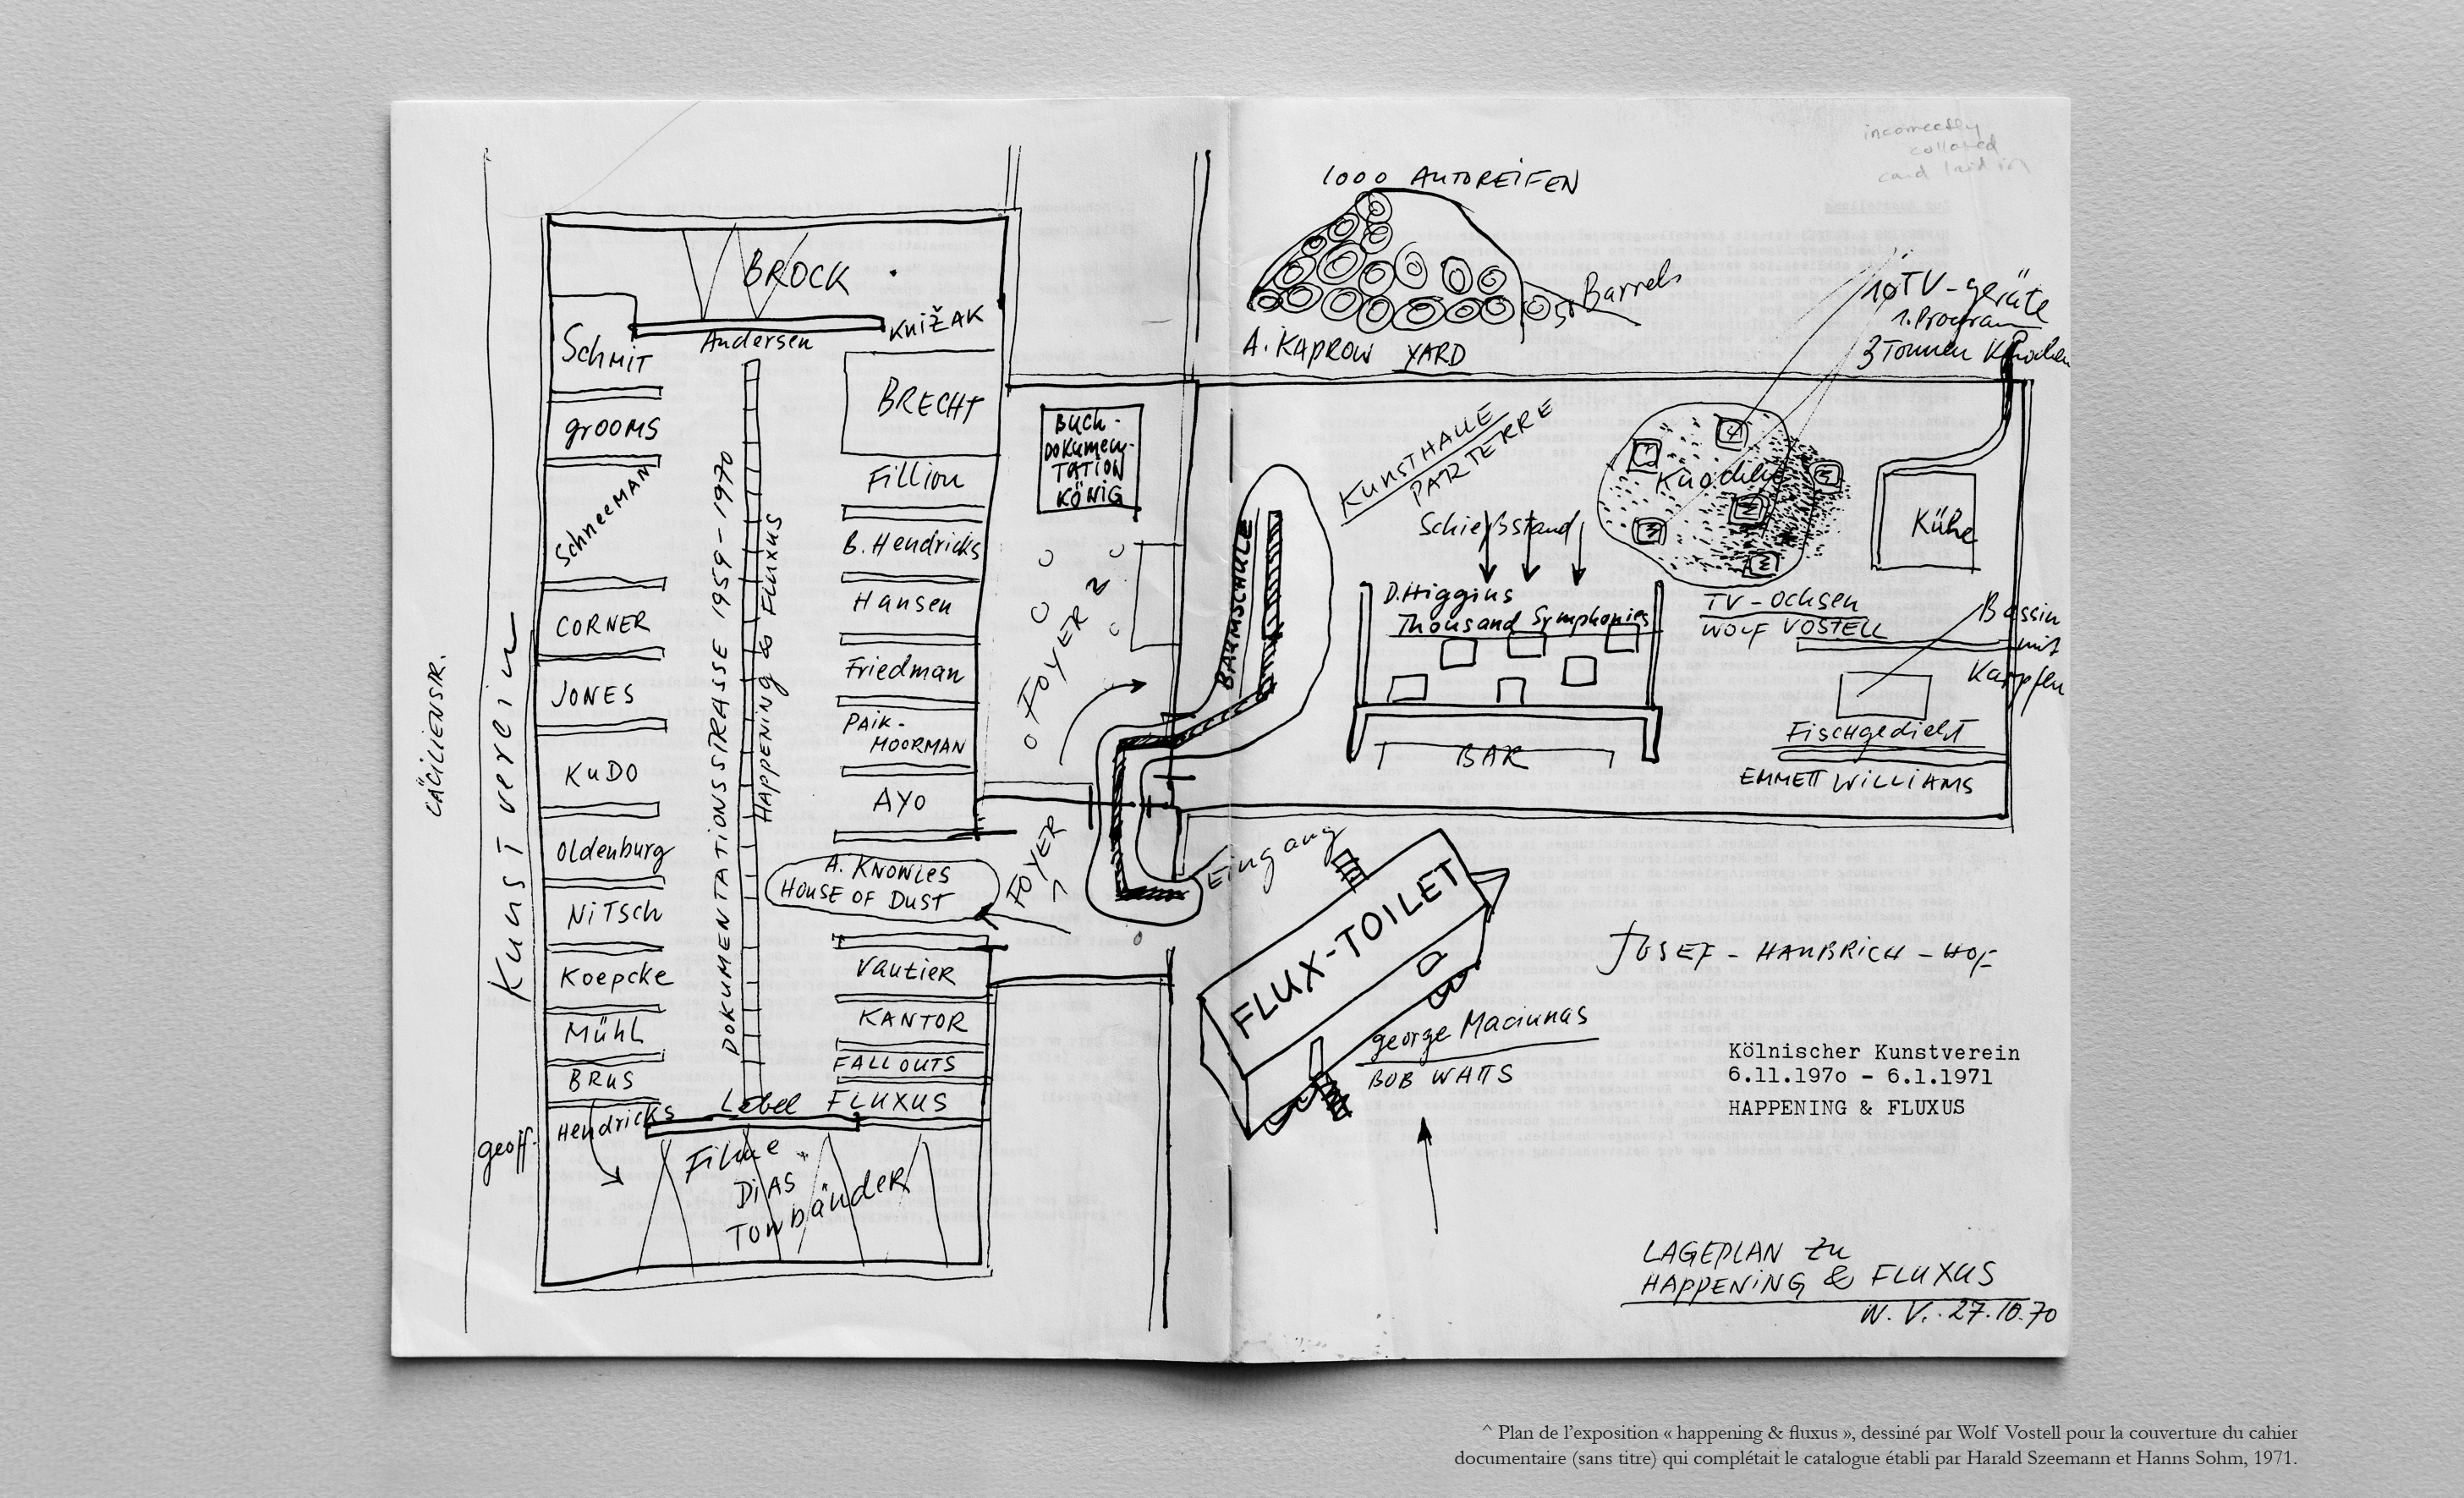 CÄCILIENSTR.
Kunstverein
BROCK
Schmit
Andersen
KNIŽAK
grooms
BRECHT
Schneeman
Fillion
CORNER
B. Hendricks
JONES
Hansen
KuDO
Friedman
Oldenburg
PAiK-
MOORMAN
NiTSch
AYO
Koepcke
A. KNOWLES
HOUSE OF DUST
Mühl
Vautier
BRUS
KANTOR
geoff.
Hendricks
FALLOUTS
Lebel
FLUXUS
Filme
DiAS
Tonbänder
DOKUMENTATIONSSTRASSE 1959-1970
HAPPENING & FLUXUS
BUCH-
DOKUMEN-
TATION
KÖNIG
FOYER 2
FOYER 1
BAUMSCHULE
Eingang
1000 AUTOREIFEN
Barrels
A. KAPROW YARD
incorrectly
collated
and laid in
10 TV-geräte
1. Program
3 Tonnen Knochen
KUNSTHALLE
PARTERRE
Knochen
Kühe
Schießstand
D. Higgins
Thousand Symphonies
TV-OCHSEN
WOLF VOSTELL
Bassin
mit
Karpfen
BAR
Fischgedicht
EMMETT WILLIAMS
FLUX-TOILET
george Maciunas
BOB WATTS
JOSEF-HAUBRICH-HOF
Kölnischer Kunstverein
6.11.1970 - 6.1.1971
HAPPENING & FLUXUS
LAGEPLAN zu
HAPPENING & FLUXUS
W. V. 27.10.70
^ Plan de l’exposition « happening & fluxus », dessiné par Wolf Vostell pour la couverture du cahier
documentaire (sans titre) qui complétait le catalogue établi par Harald Szeemann et Hanns Sohm, 1971.